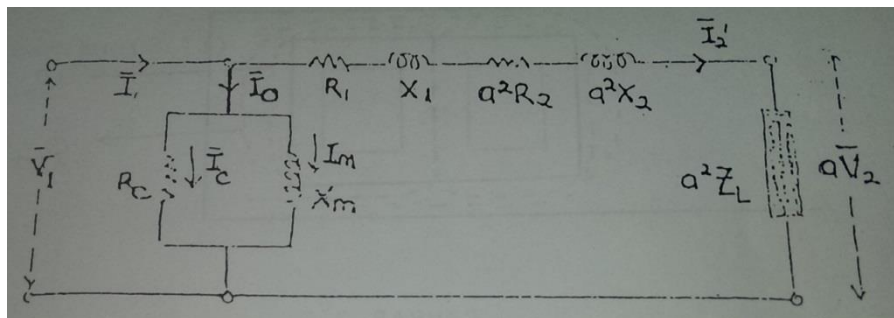 Ī₂'
Ī₁ Ī₀ R₁ X₁ a²R₂ a²X₂
V̄₁ R_C Ī_C I_m X_m a²Z_L aV̄₂